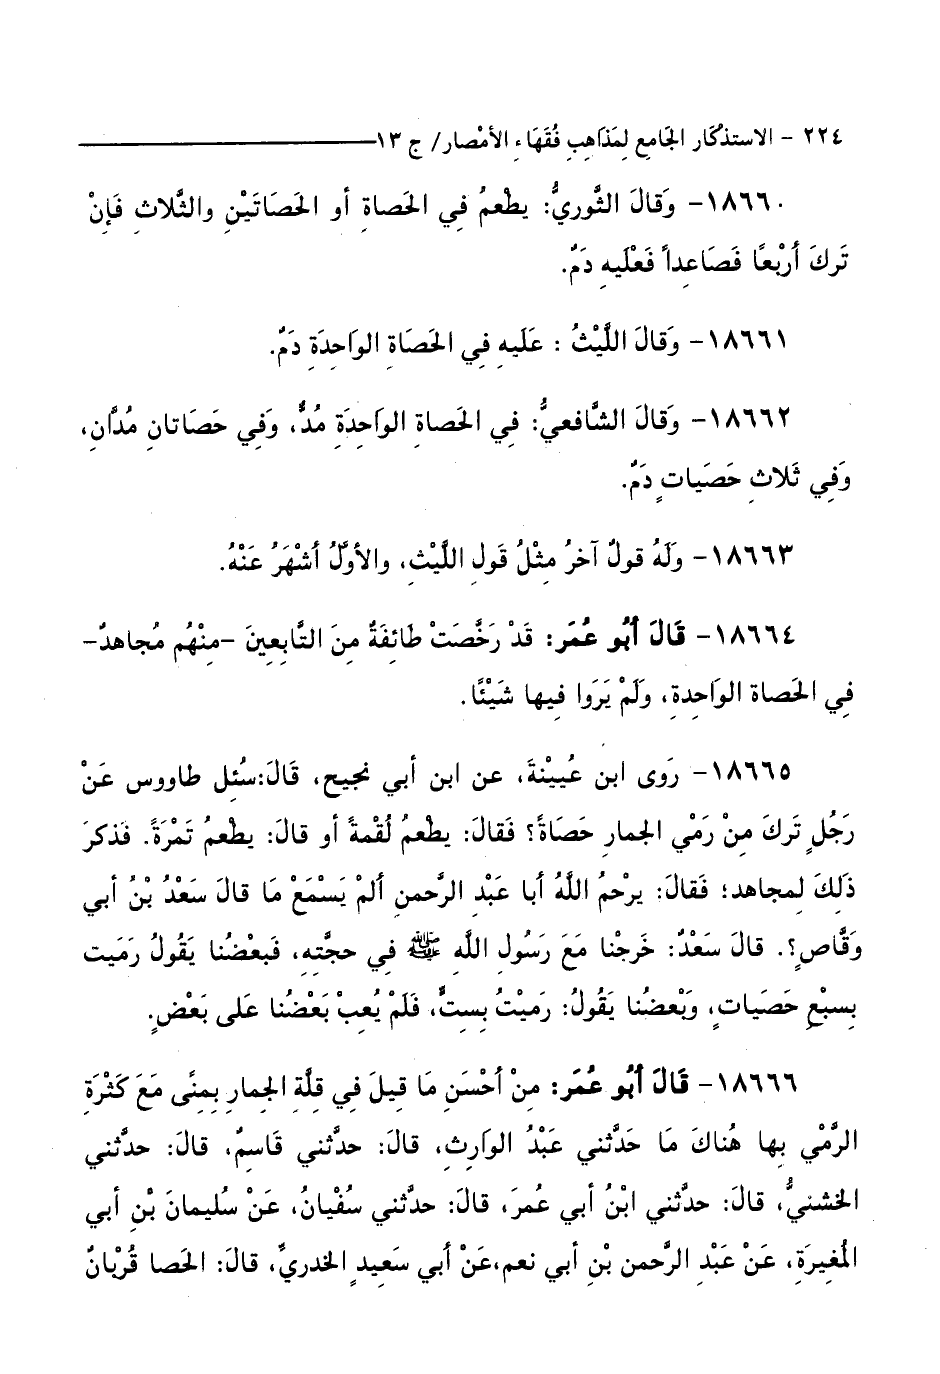 ٢٢٤ - الاستذكار الجامع لمذاهب فقهاء الأمصار/ ج ١٣
١٨٦٦٠- وَقالَ الثَّوريُّ: يطْعمُ فِي الحَصاةِ أو الحَصَاتَيْنِ والثَّلاثِ فَإِنْ
تَركَ أرْبعًا فَصَاعِداً فَعْليهِ دَمٌ.
١٨٦٦١- وَقالَ اللَّيْثُ : عَلَيهِ فِي الحَصَاةِ الوَاحِدَةِ دَمٌ.
١٨٦٦٢- وَقالَ الشَّافعيُّ: فِي الحَصاةِ الوَاحِدَةِ مُدٌّ، وَفِي حَصَاتانِ مُدَّانِ،
وَفِي ثَلاثِ حَصَياتٍ دَمٌ.
١٨٦٦٣- وَلَهُ قولٌ آخرُ مِثْلُ قَولِ اللَّيْثِ، والأوَّلُ أشْهَرُ عَنْهُ.
١٨٦٦٤- قَالَ أَبُو عُمَر: قَدْ رَخَّصَتْ طَائِفَةٌ مِنَ التَّابِعِينَ -مِنْهُم مُجاهدٌ-
فِي الحَصاة الوَاحِدةِ، ولَمْ يَرَوا فِيها شَيْئًا.
١٨٦٦٥- رَوى ابن عُيينْةَ، عن ابن أبي نجيح، قَالَ:سُئِل طاووس عَنْ
رَجُلٍ تَركَ مِنْ رَمْيِ الجمارِ حَصَاةً؟ فَقالَ: يطْعمُ لُقْمةً أو قالَ: يطْعمُ تَمْرَةً. فَذكرَ
ذَلِكَ لِمجاهد؛ فَقالَ: يرْحمُ اللَّهُ أبا عَبْد الرَّحمنِ ألمْ يَسْمَعْ مَا قالَ سَعْدُ بْنُ أبي
وَقَّاصٍ؟. قالَ سَعْدٌ: خَرجْنا مَعَ رَسُولِ اللَّهِ ﷺ فِي حجَّتِهِ، فَبعْضُنا يَقُولُ رَمَيت
بِسبْعِ حَصَياتٍ، وَبْعضُنا يَقُولُ: رَميْتُ بِستٌّ، فَلَمْ يُعِبْ بَعْضُنا عَلى بَعْضٍ.
١٨٦٦٦- قَالَ أَبُو عُمَر: مِنْ أحْسَنِ مَا قيلَ فِي قلَّةِ الجِمارِ بِمنًى مَعَ كَثْرَةِ
الرَّمْي بِها هُناكَ مَا حَدَّثني عَبْدُ الوَارثِ، قالَ: حدَّثني قَاسِمٌ، قالَ: حدَّثني
الخشنيُّ، قالَ: حدَّثني ابْنُ أبي عُمرَ، قالَ: حدَّثني سفْيانُ، عَنْ سُليمانَ بْنِ أبي
المُغيرَةِ، عَنْ عَبْدِ الرَّحمن بْنِ أبي نعم،عَنْ أبي سَعيدٍ الخدريِّ، قالَ: الحَصا قُرْبانٌ